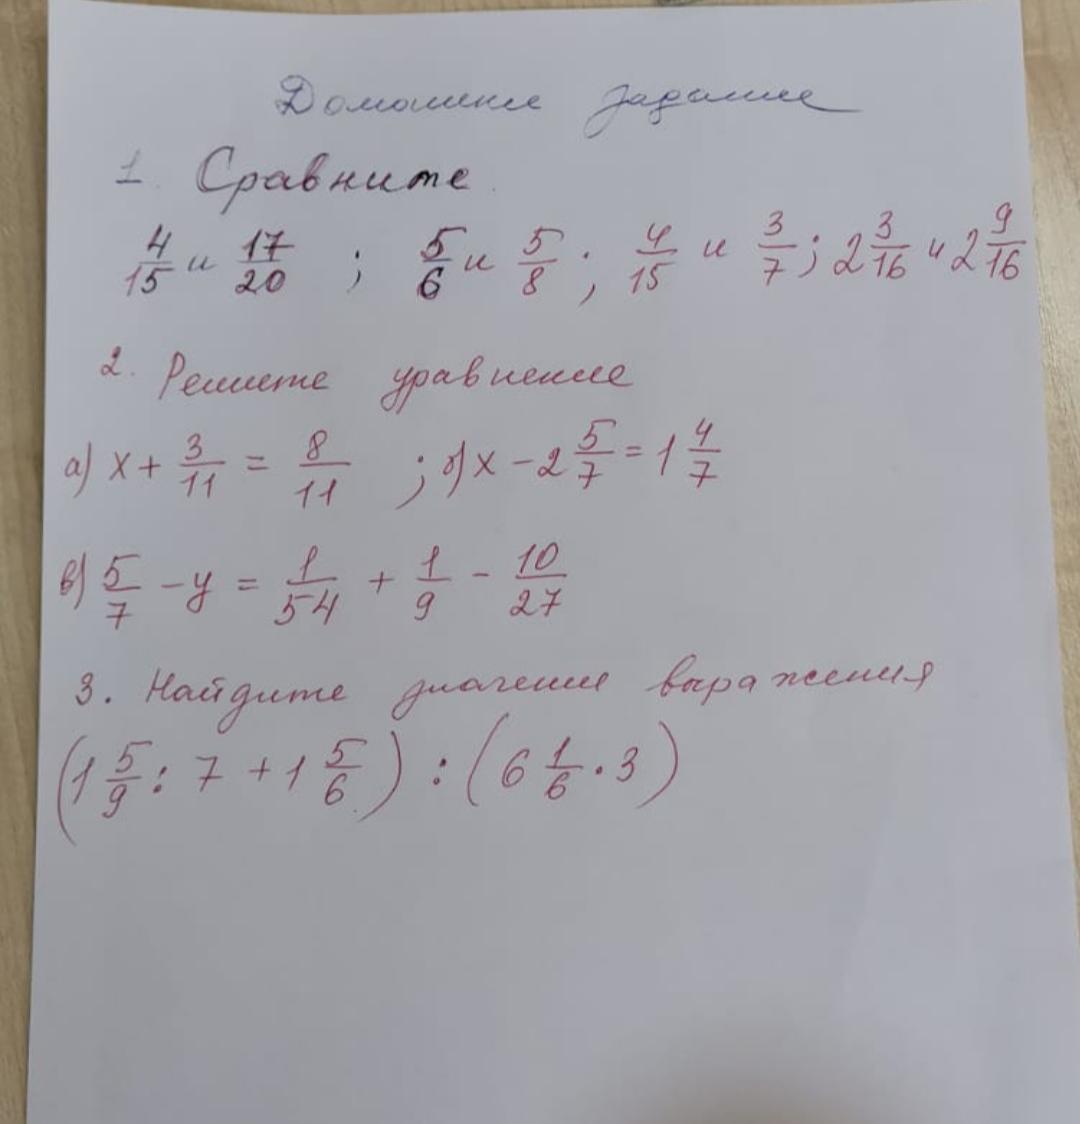 Домашнее задание
1. Сравните
4/15 и 17/20 ; 5/6 и 5/8 ; 4/15 и 3/7 ; 2 3/16 и 2 9/16
2. Решите уравнение
а) x + 3/11 = 8/11 ; б) x - 2 5/7 = 1 4/7
в) 5/7 - y = 1/54 + 1/9 - 10/27
3. Найдите значение выражения
(1 5/9 : 7 + 1 5/6) : (6 1/6 · 3)